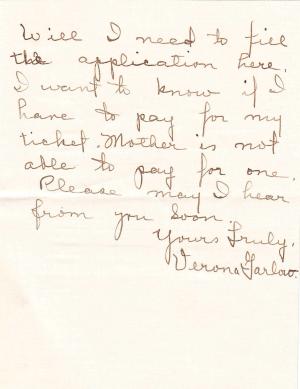 Will I need to fill
the application here.
I want to know if I
have to pay for my
ticket. Mother is not
able to pay for one.
Please may I hear
from you soon.
Yours Truly,
Verona Garlow.